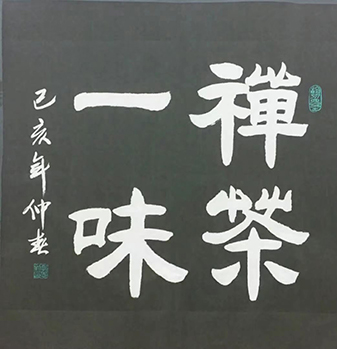 禪茶
一味
己亥年仲春